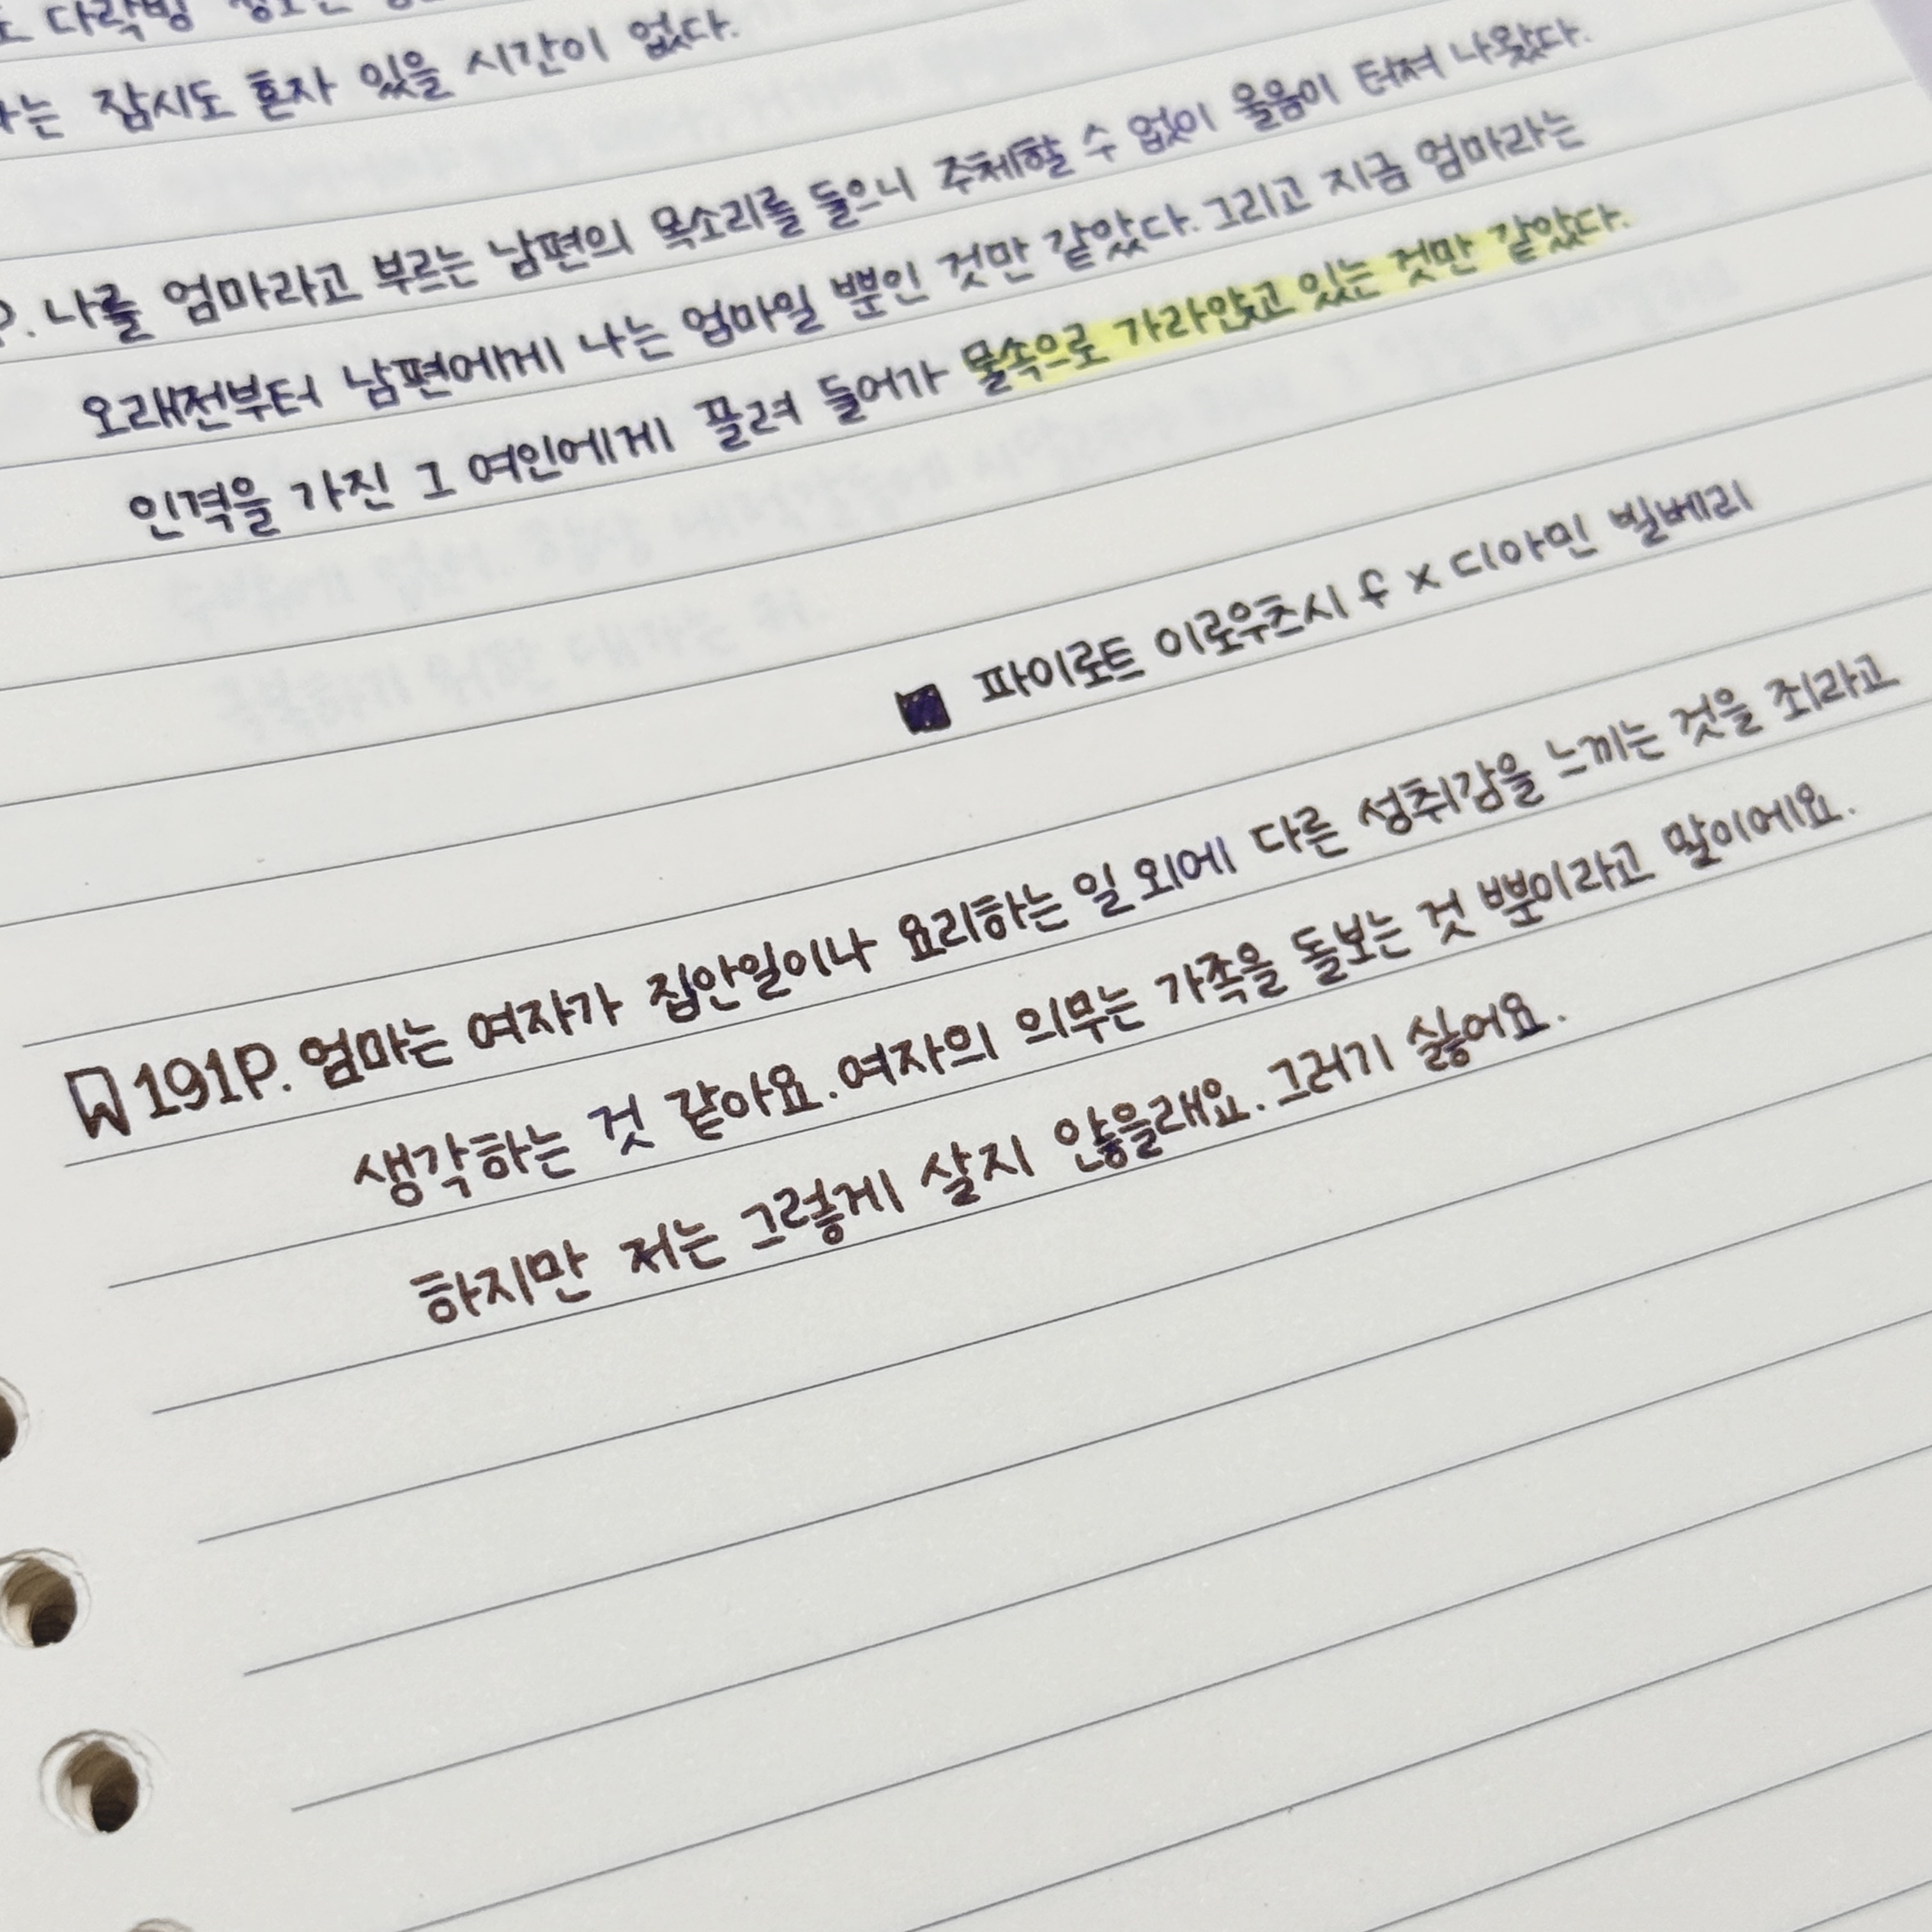 다락방
는 잠시도 혼자 있을 시간이 없다.
P. 나를 엄마라고 부르는 남편의 목소리를 들으니 주체할 수 없이 울음이 터져 나왔다.
오래전부터 남편에게 나는 엄마일 뿐인 것만 같았다. 그리고 지금 엄마라는
인격을 가진 그 여인에게 끌려 들어가 물속으로 가라앉고 있는 것만 같았다.
■ 파이로트 이로우츠시 f x 디아민 빌베리
191P. 엄마는 여자가 집안일이나 요리하는 일 외에 다른 성취감을 느끼는 것을 죄라고
생각하는 것 같아요. 여자의 의무는 가족을 돌보는 것 뿐이라고 말이에요.
하지만 저는 그렇게 살지 않을래요. 그러기 싫어요.